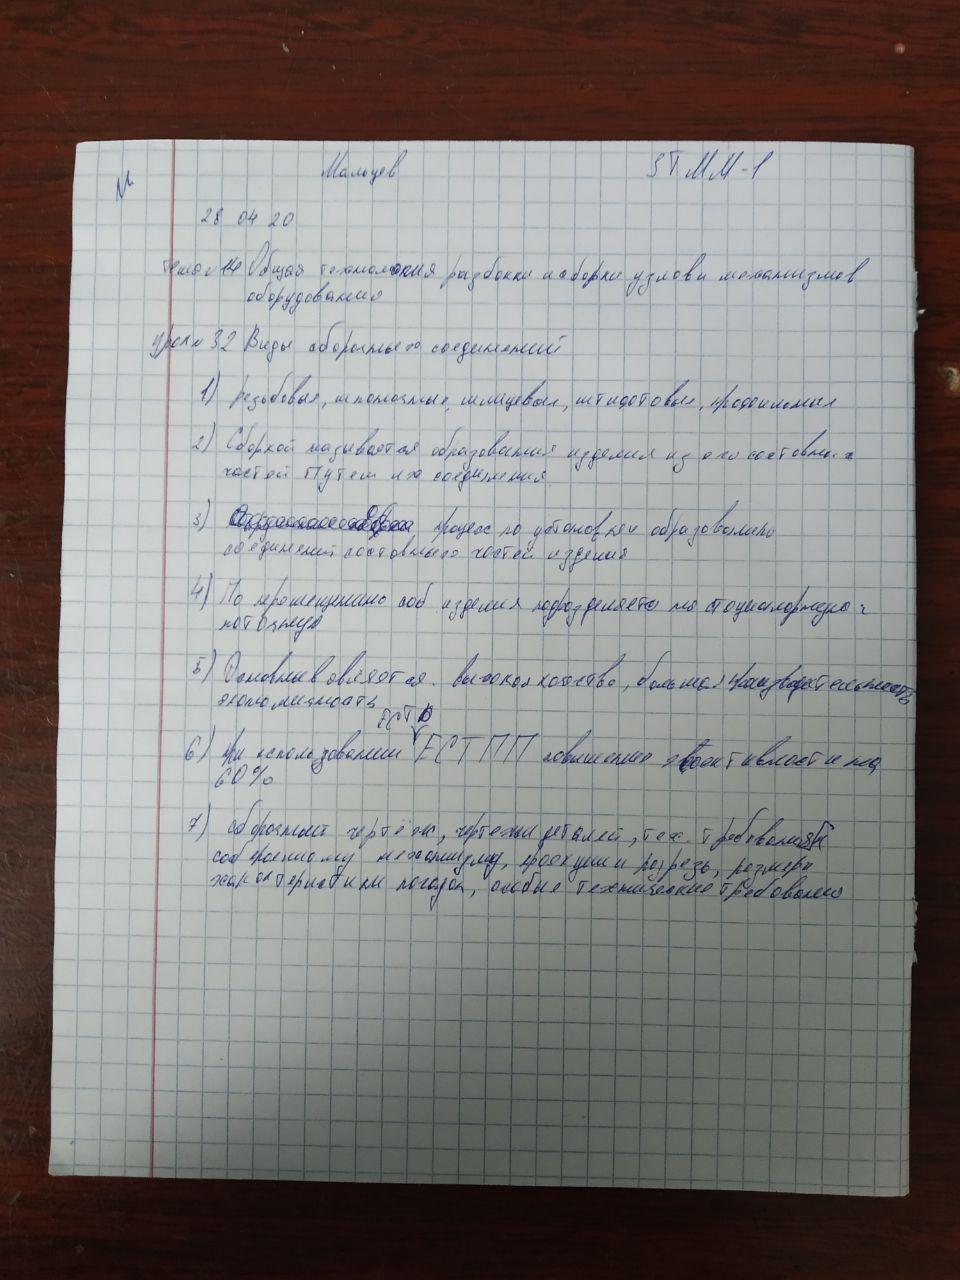 №
Мальцев 3ТММ-1
28 04 20
тема №14 Общая технология разборки и сборки узлов и механизмов
оборудования
урок № 32 Виды сборочных соединений
1) резьбовые, шпоночные, шлицевые, штифтовые, профильные
2) Сборкой называется образования изделия из его составных
частей Путем их соединения.
3) процесс по установки образованию
соединений составных частей изделия
4) По перемещению соб изделия подразделяется на стационарную и
поточную
5) Основные являются. высокая качество, большая производительность
экономичность
ЕСТД
6) при использовании ЕСТПП повышение эффективности на
60%
7) сборочный чертёж, чертежи деталей, тех. требования к
собранному механизму, проекции и разрезы, размеры
характеристики посадок, особые технические требования